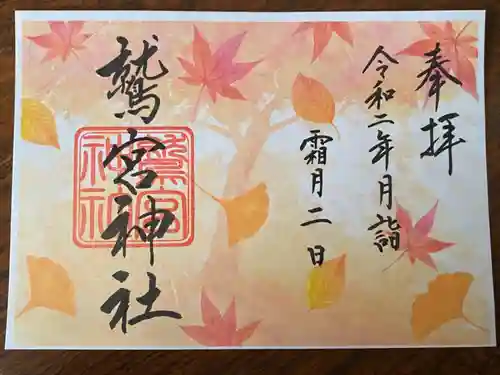 奉拝
令和二年月詣
霜月二日
鷲宮神社
鷲宮神社